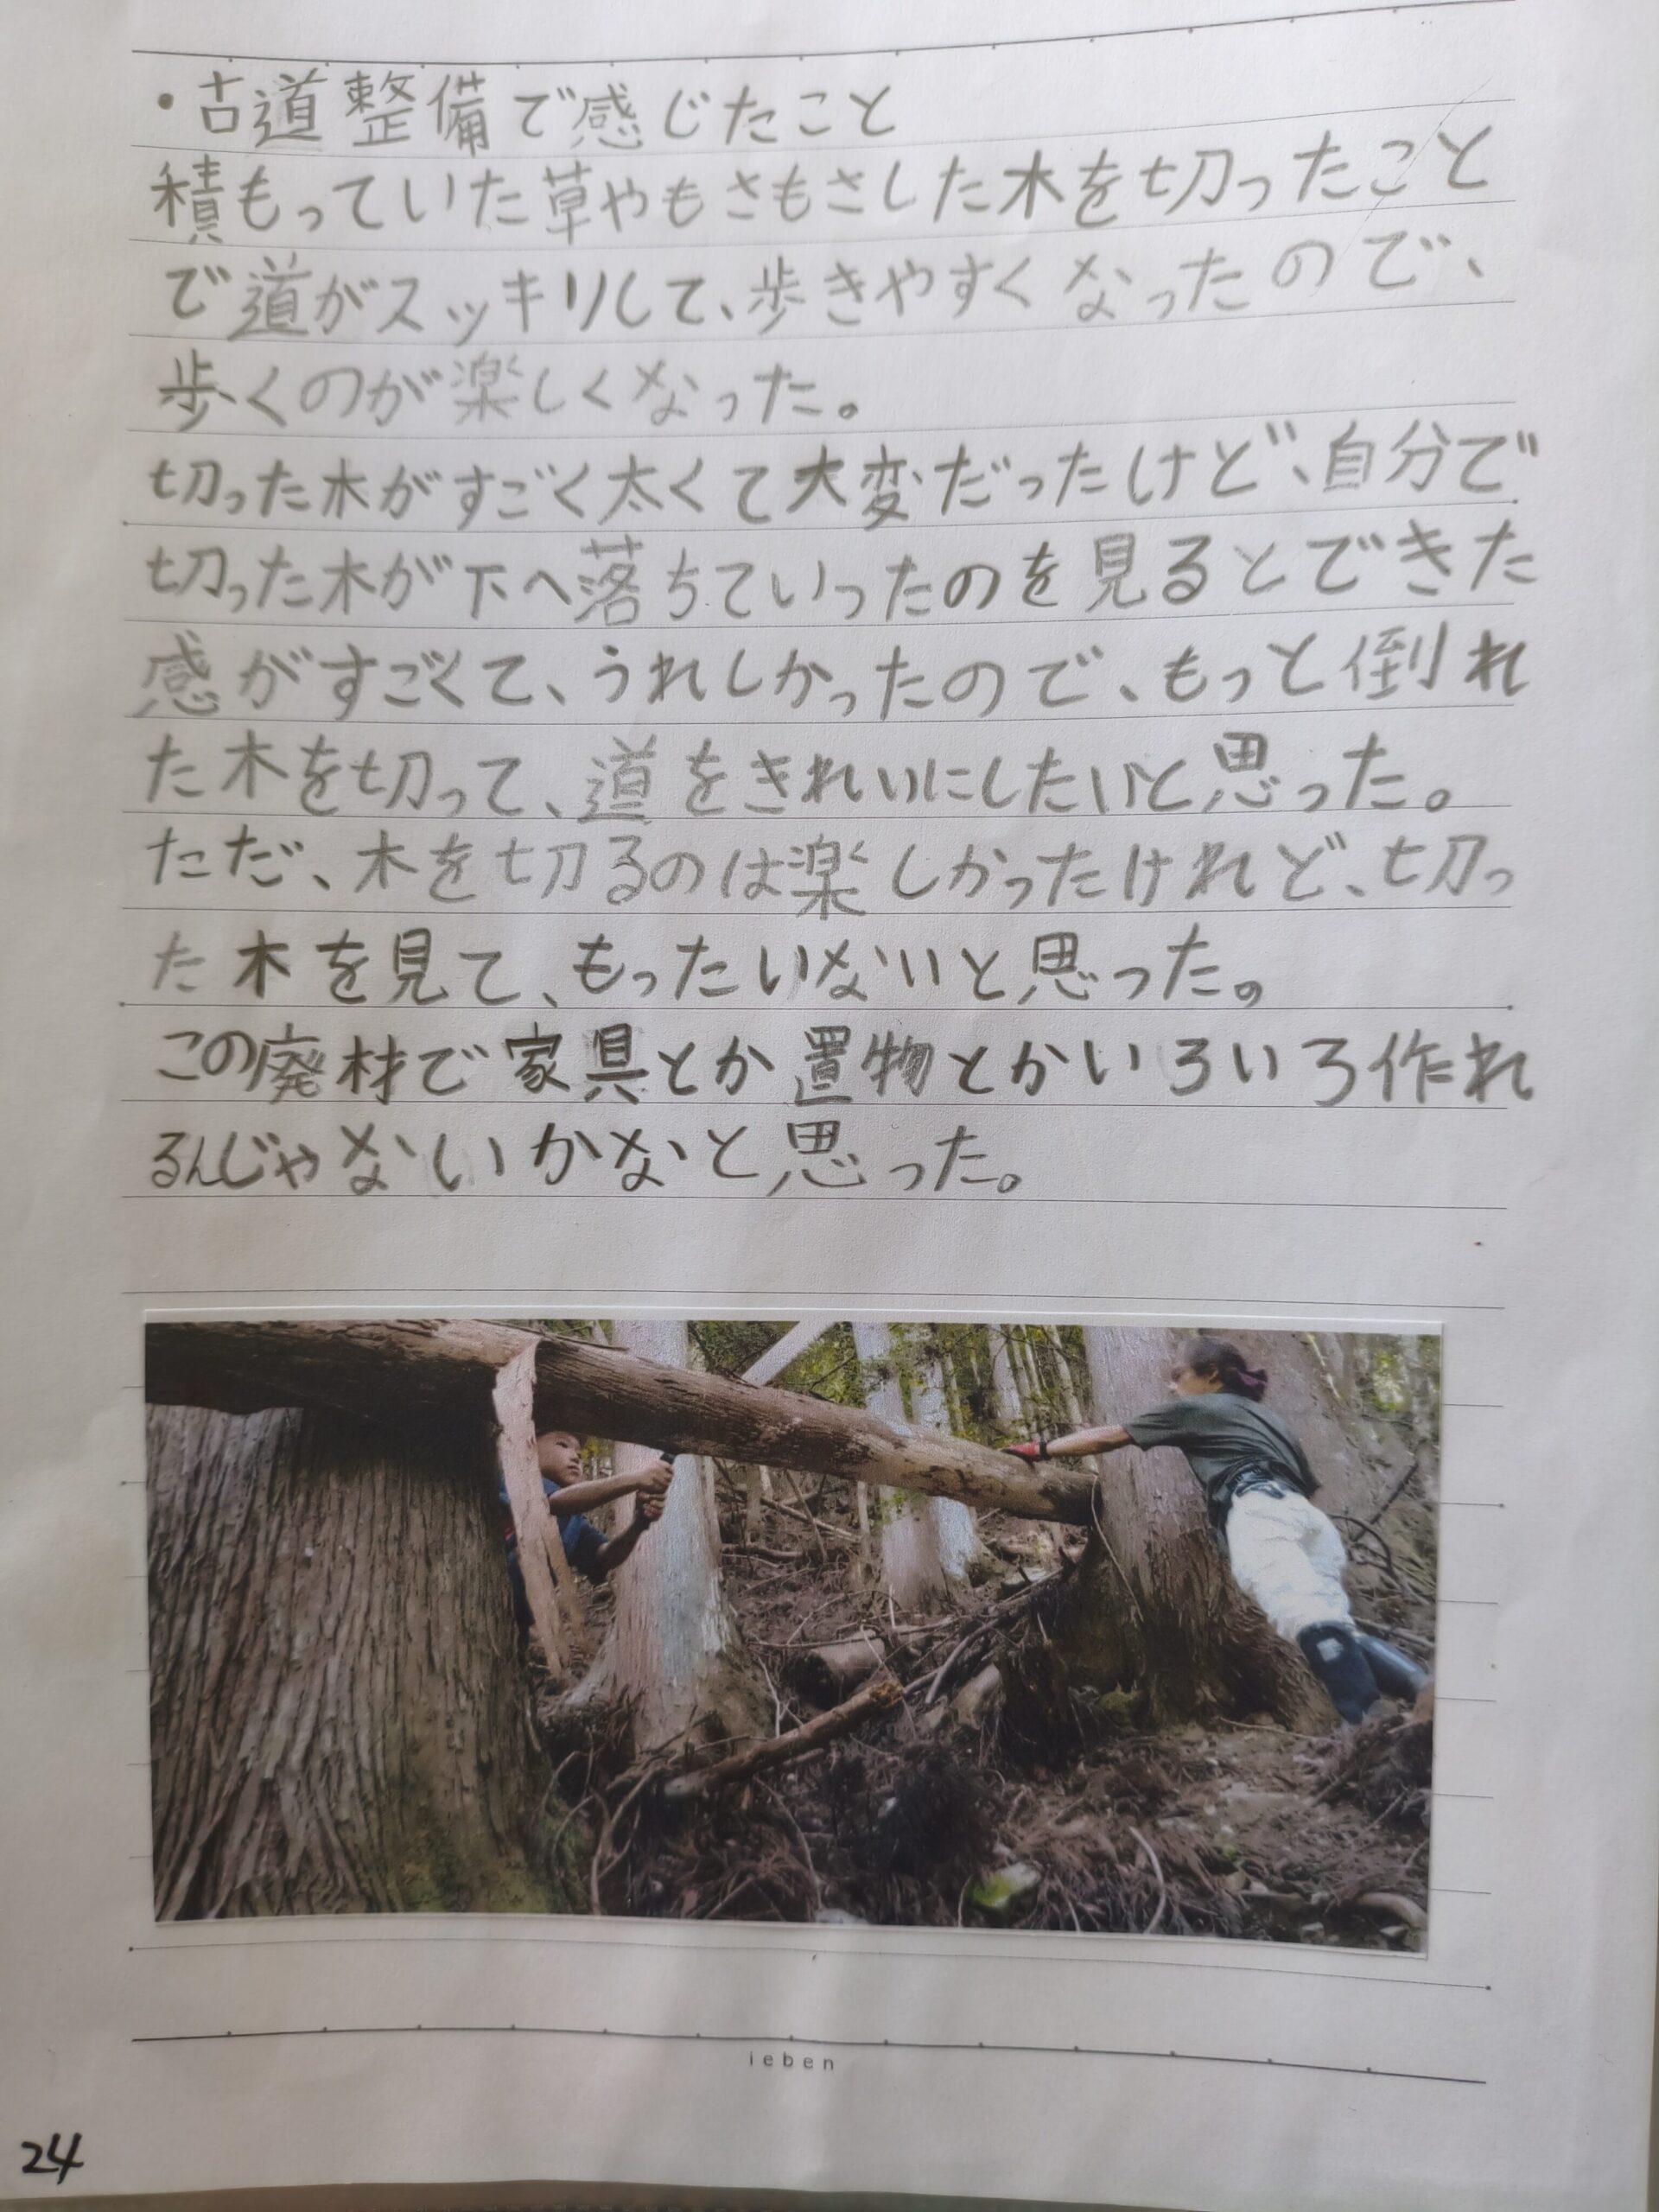 ・古道整備で感じたこと
積もっていた草やもさもさした木を切ったこと
で道がスッキリして、歩きやすくなったので、
歩くのが楽しくなった。
切った木がすごく太くて大変だったけど、自分で
切った木が下へ落ちていったのを見るとできた
感がすごくて、うれしかったので、もっと倒れ
た木を切って、道をきれいにしたいと思った。
ただ、木を切るのは楽しかったけれど、切っ
た木を見て、もったいないと思った。
この廃材で家具とか置物とかいろいろ作れ
るんじゃないかなと思った。
ieben
24